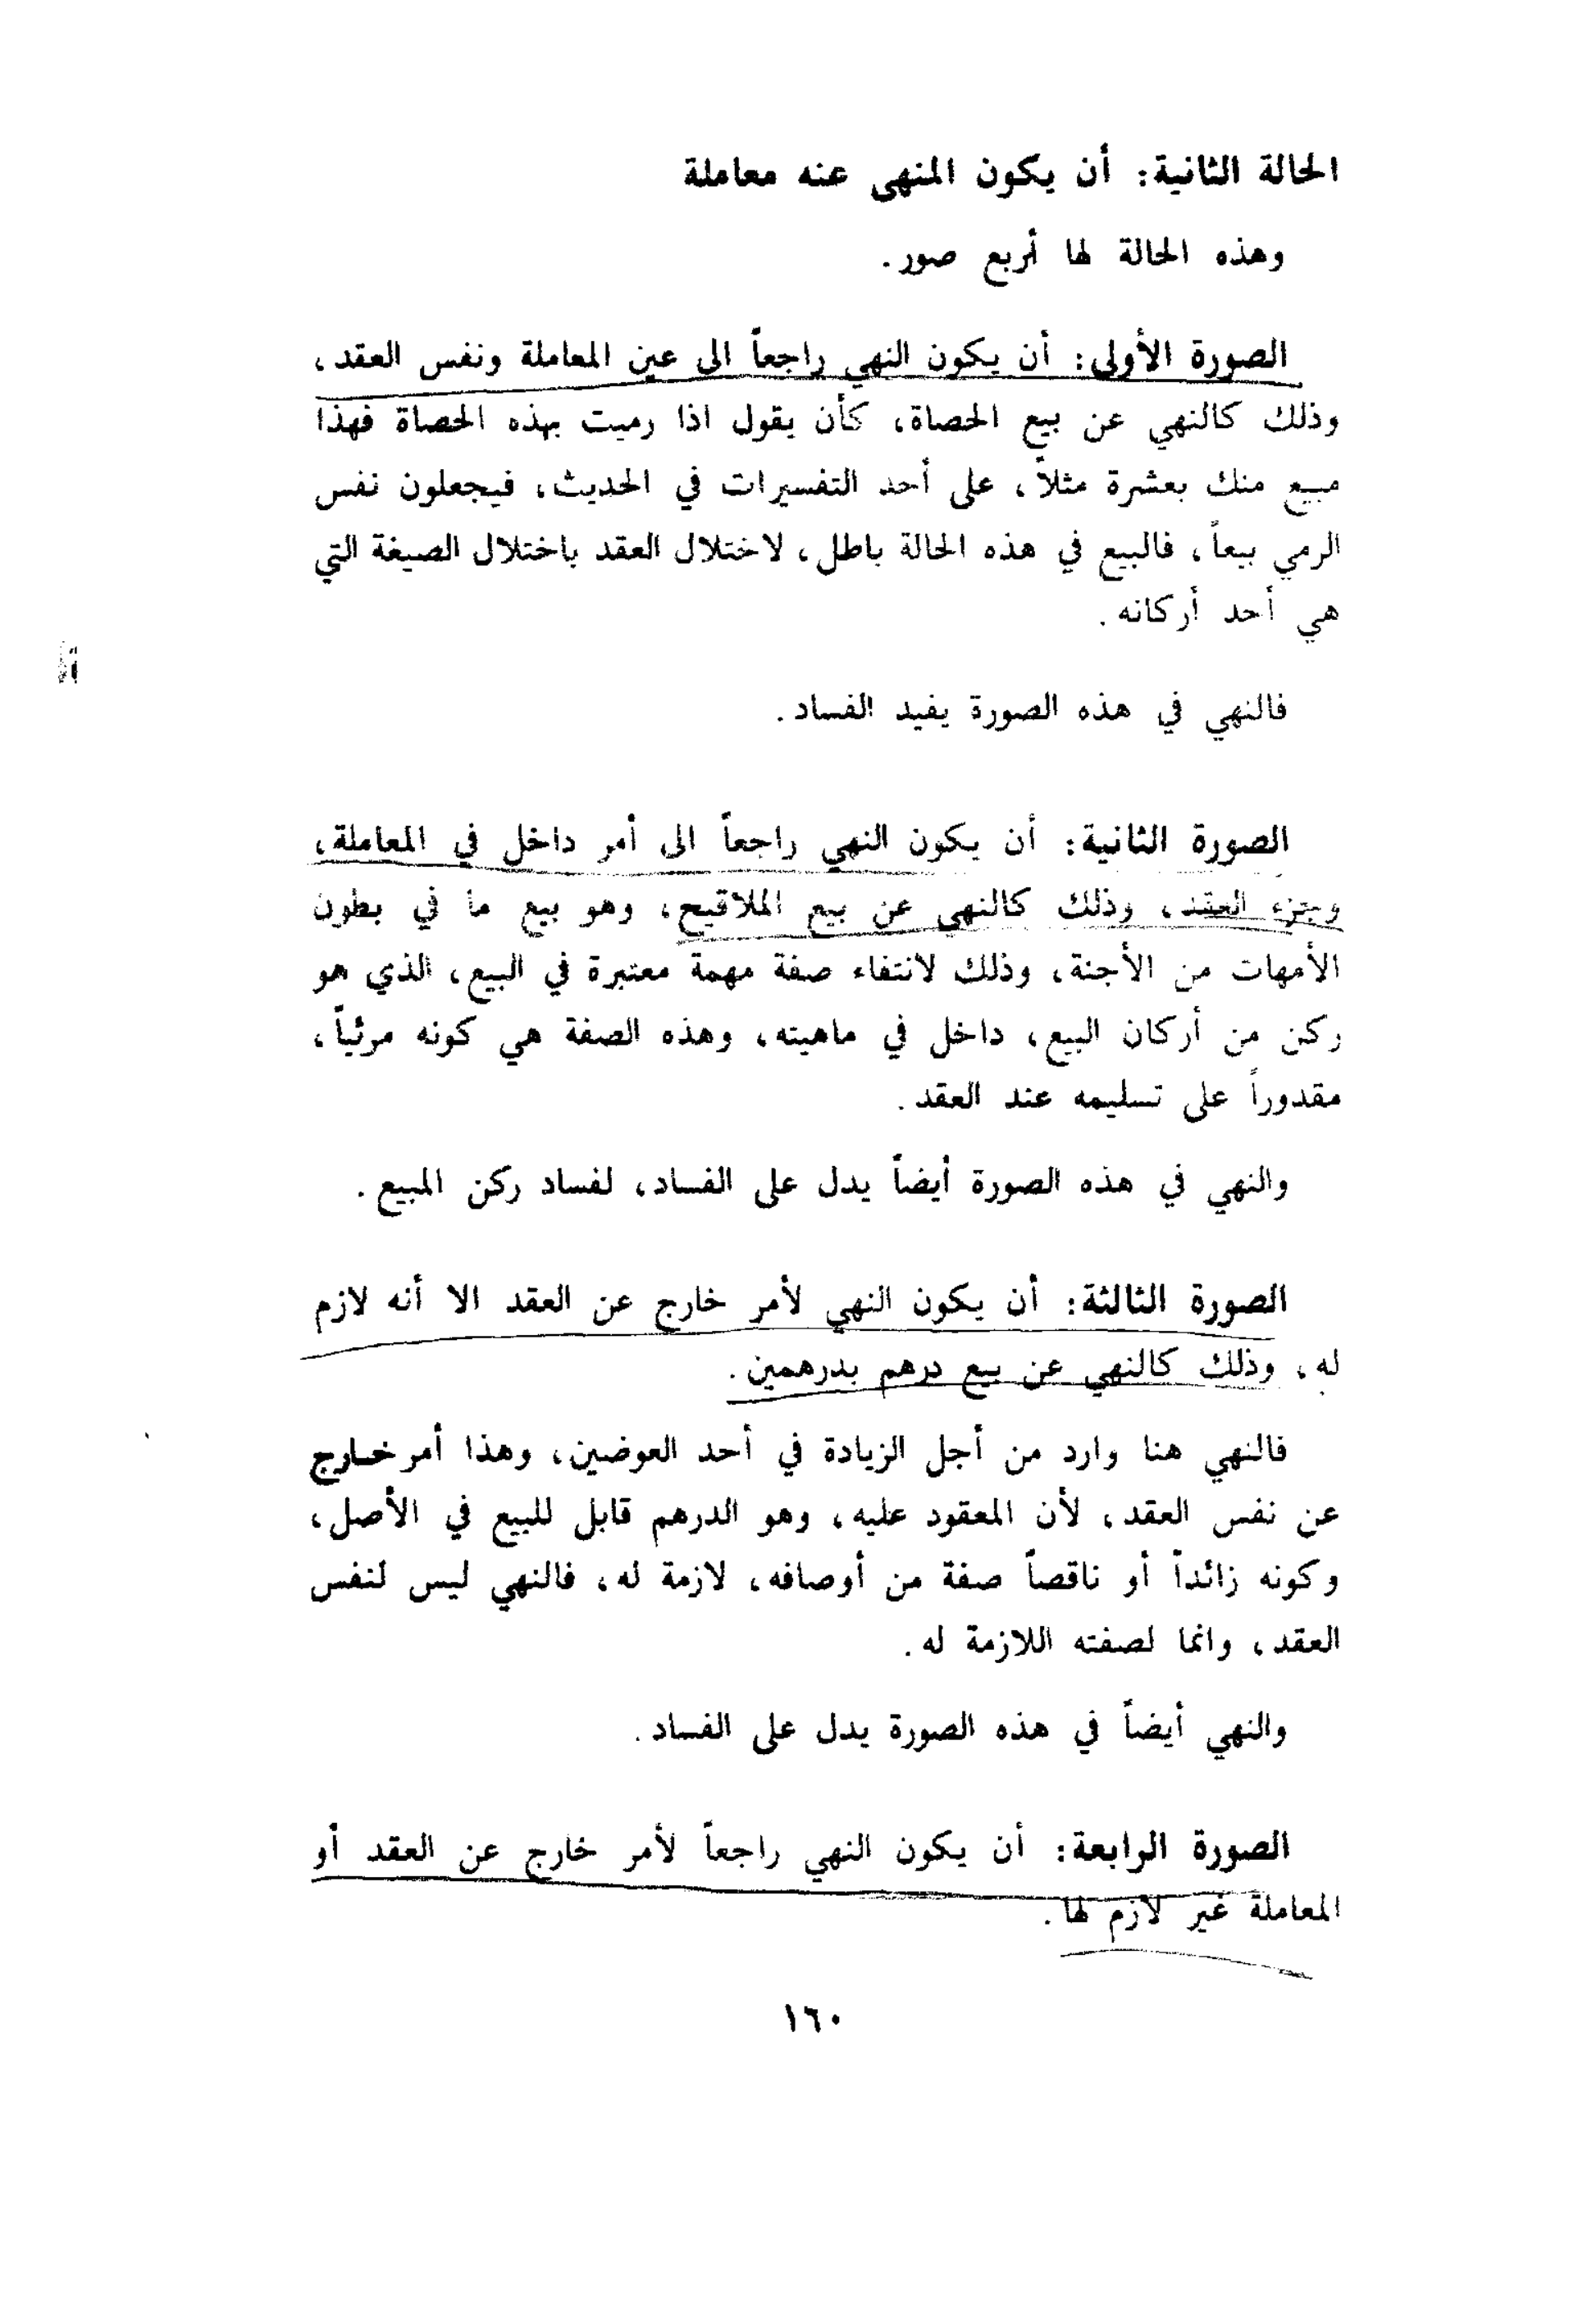 الحالة الثانية: أن يكون المنهى عنه معاملة
وهذه الحالة لها أربع صور.
الصورة الأولى: أن يكون النهي راجعاً الى عين المعاملة ونفس العقد،
وذلك كالنهي عن بيع الحصاة، كأن يقول اذا رميت بهذه الحصاة فهذا
مبيع منك بعشرة مثلاً، على أحد التفسيرات في الحديث، فيجعلون نفس
الرمي بيعاً، فالبيع في هذه الحالة باطل، لاختلال العقد باختلال الصيغة التي
هي أحد أركانه.
فالنهي في هذه الصورة يفيد الفساد.
الصورة الثانية: أن يكون النهي راجعاً الى أمر داخل في المعاملة،
وجزء العقد، وذلك كالنهي عن بيع الملاقيح، وهو بيع ما في بطون
الأمهات من الأجنة، وذلك لانتفاء صفة مهمة معتبرة في البيع، الذي هو
ركن من أركان البيع، داخل في ماهيته، وهذه الصفة هي كونه مرئياً،
مقدوراً على تسليمه عند العقد.
والنهي في هذه الصورة أيضاً يدل على الفساد، لفساد ركن المبيع.
الصورة الثالثة: أن يكون النهي لأمر خارج عن العقد الا أنه لازم
له، وذلك كالنهي عن بيع درهم بدرهمين.
فالنهي هنا وارد من أجل الزيادة في أحد العوضين، وهذا أمر خارج
عن نفس العقد، لأن المعقود عليه، وهو الدرهم قابل للبيع في الأصل،
وكونه زائداً أو ناقصاً صفة من أوصافه، لازمة له، فالنهي ليس لنفس
العقد، وانما لصفته اللازمة له.
والنهي أيضاً في هذه الصورة يدل على الفساد.
الصورة الرابعة: أن يكون النهي راجعاً لأمر خارج عن العقد أو
المعاملة غير لازم لها.
١٦٠